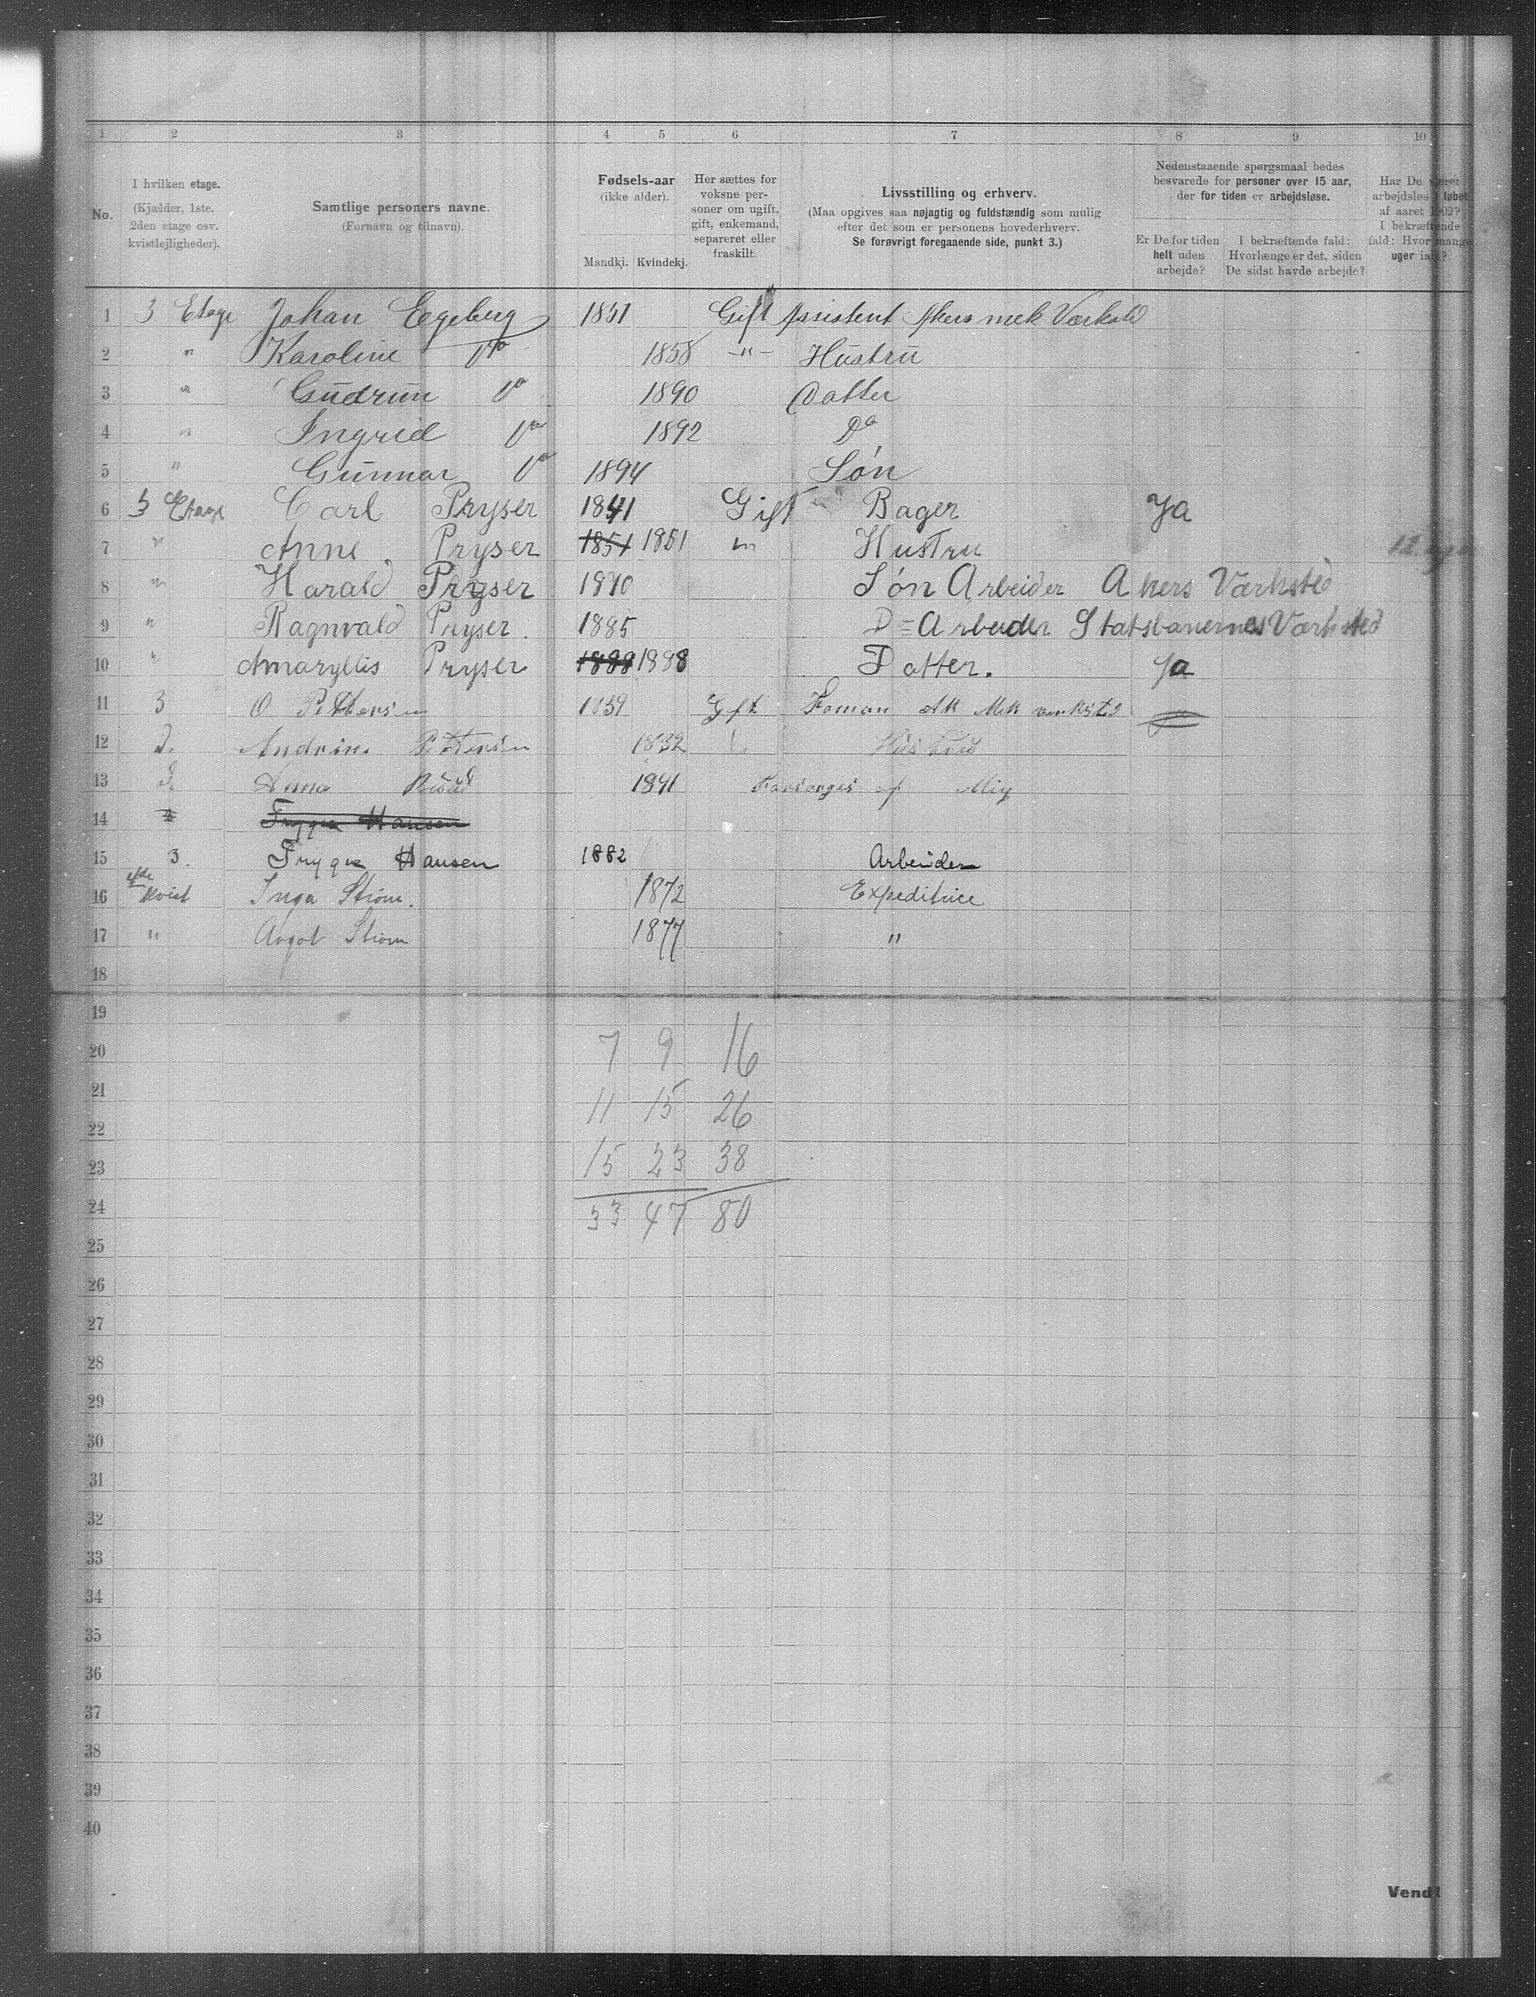 1 2 3 4 5 6 7 8 9 10
No.
I hvilken etage.
(Kjælder, 1ste.
2den etage osv.
kvistlejligheder).
Samtlige personers navne.
(Fornavn og tilnavn).
Fødsels-aar
(ikke alder).
Mandkj. Kvindekj.
Her sættes for
voksne per-
soner om ugift,
gift, enkemand,
separeret eller
fraskilt.
Livsstilling og erhverv.
(Maa opgives saa nøjagtig og fuldstændig som mulig
efter det som er personens hovederhverv.
Se forøvrigt foregaaende side, punkt 3.)
Nedenstaaende spørgsmaal bedes
besvarede for personer over 15 aar,
der for tiden er arbejdsløse.
Er De for tiden
helt uden
arbejde?
I bekræftende fald:
Hvorlænge er det, siden
De sidst havde arbejde?
Har De været
arbejdsløs i løbet
af aaret 1902?
I bekræftende
fald: Hvor mange
uger ialt?
1 3 Etage Johan Egeberg 1851 Gift Assistent Akers mek Værksted
2 " Karoline Do 1858 -"- Hustru
3 " Gudrun Do 1890 Datter
4 " Ingrid Do 1892 Do
5 " Gunnar Do 1894 Søn
6 3 Etage Carl Pryser 1841 Gift Bager Ja
7 " Anne Pryser 1851 1851 " Hustru 12 uger
8 " Harald Pryser 1870 Søn Arbeider Akers Værksted
9 " Ragnvald Pryser. 1885 Do Arbeider Statsbanernes Værksted
10 " Amaryllis Pryser 1888 1888 Datter. Ja
11 3 O Pettersen 1839 Gift Forman Ak Mek verksted
12 D. Andrine Pettersen 1832 D. Hustrud
13 D. Anna 1841 Forsørges af Mig
14 Trygve Hansen
15 3. Trygve Hansen 1882 Arbeider
16 4de Kvist Inga Strøm. 1872 Expeditrice
17 " Aagot Strøm 1877 "
18
19
20 7 9 16
21 11 15 26
22
23 15 23 38
24 33 47 80
25
26
27
28
29
30
31
32
33
34
35
36
37
38
39
40
Vend!